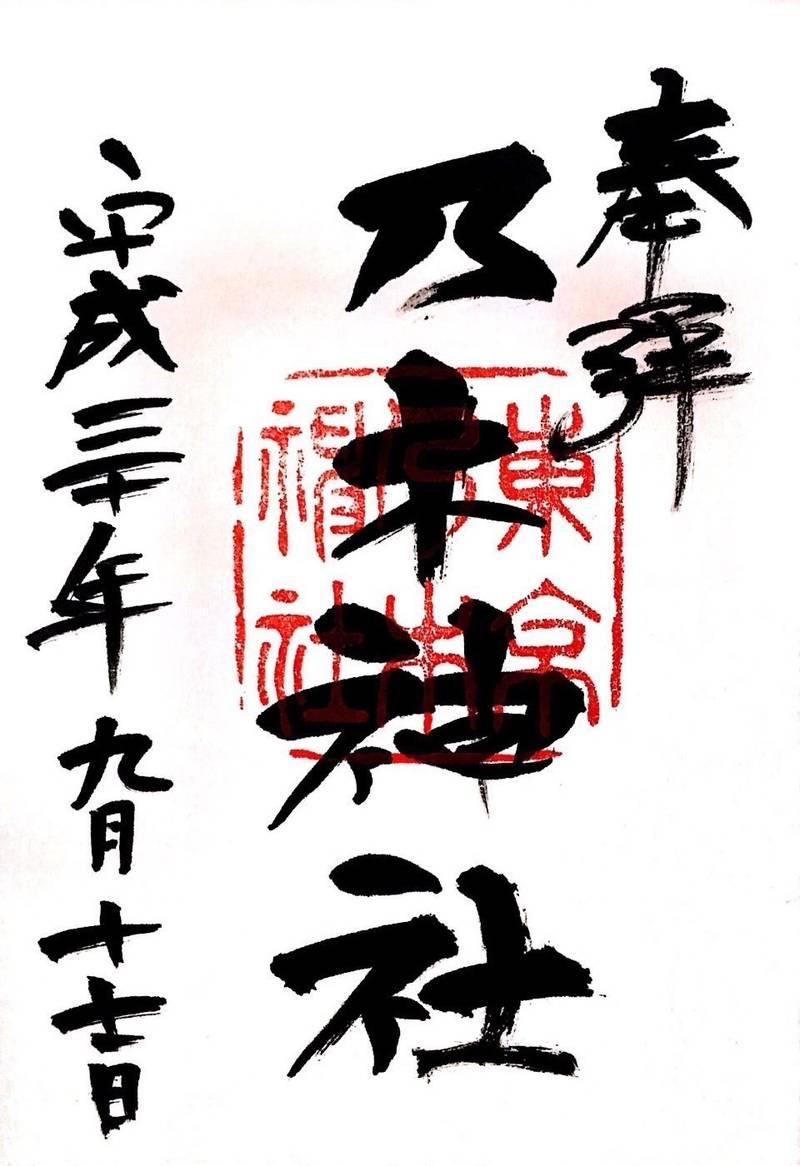 奉拝
乃木神社
東京
乃木
神社
平成三十年九月十七日